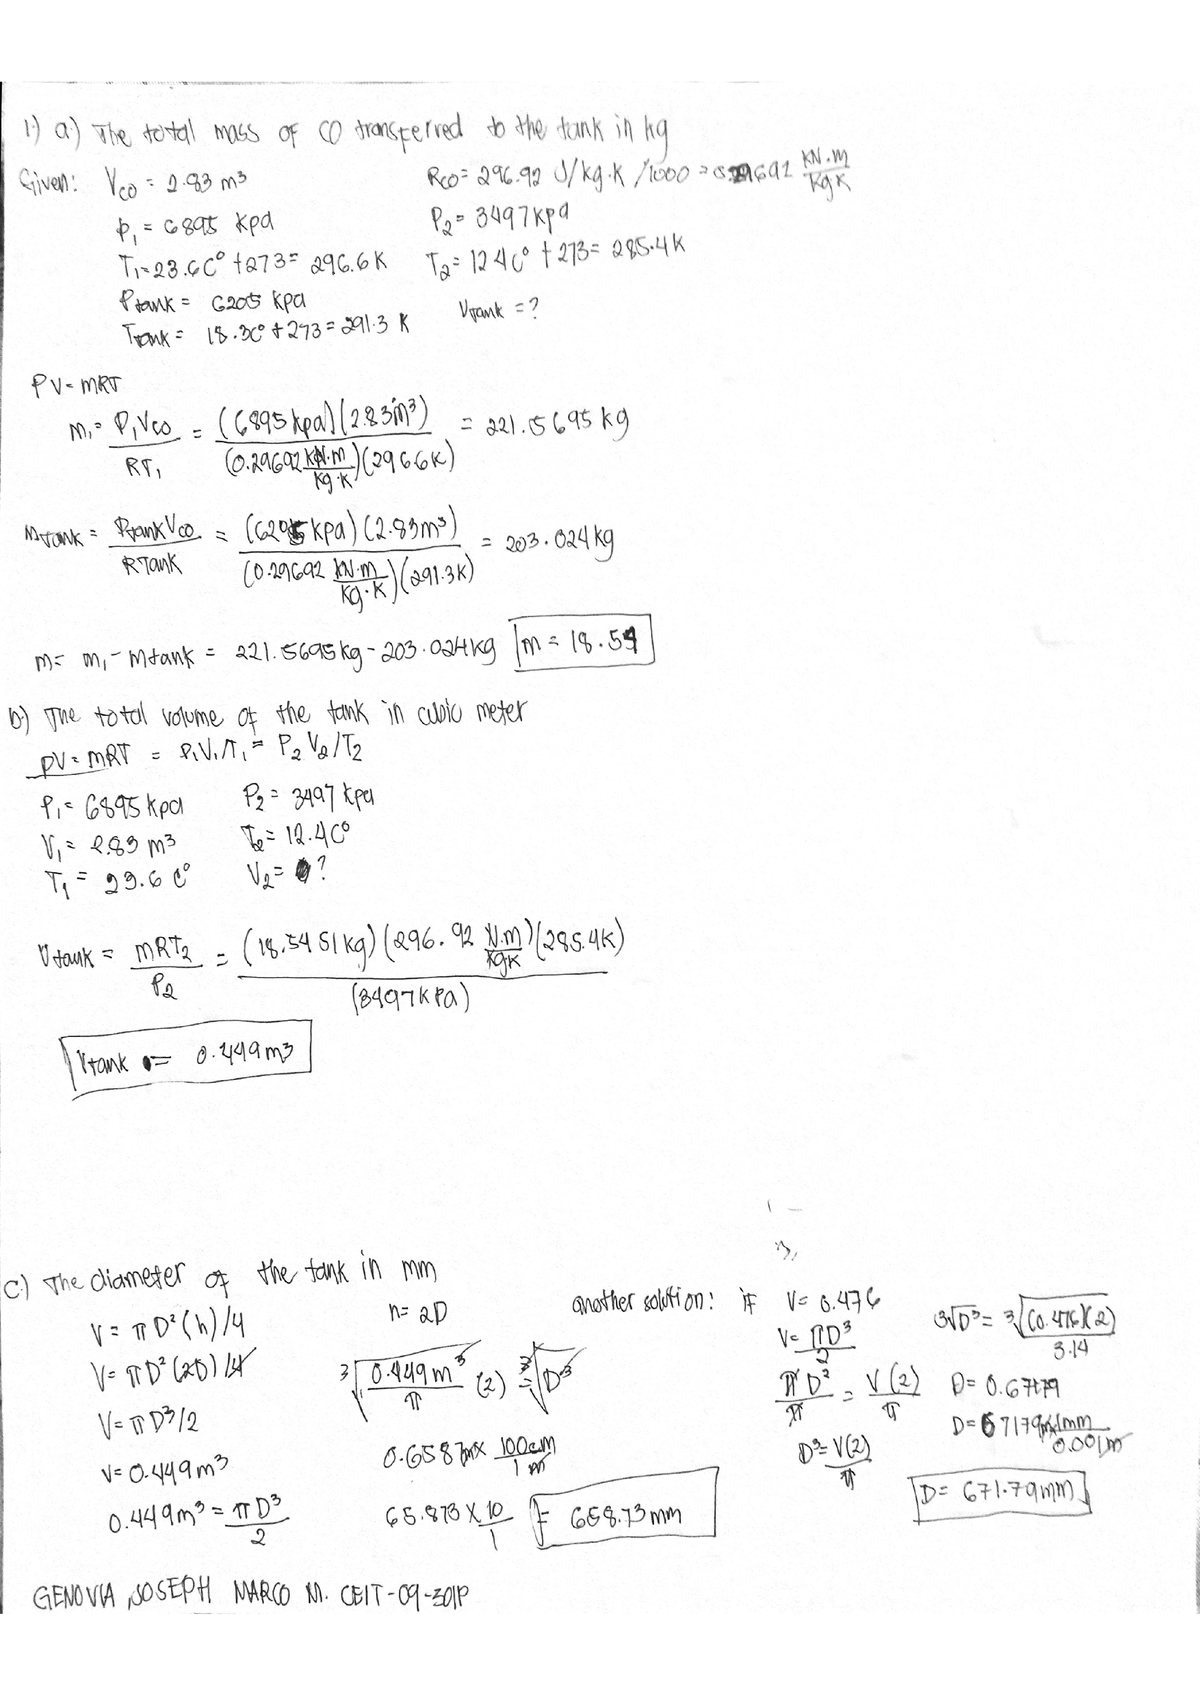 1.) a.) The total mass of CO transferred to the tank in kg
Given: Vco = 2.83 m³
Rco = 296.92 J/kg·K /1000 = 0.29692 KN·m/Kg K
P₁ = 6895 kpa
P₂ = 3497 kpa
T₁ = 23.6C° + 273 = 296.6 K
T₂ = 12.4C° + 273 = 285.4K
Ptank = 6205 kpa
Vtank = ?
Ttank = 18.3C° + 273 = 291.3 K
PV = mRT
m₁ = P₁Vco / RT₁ = (6895 kpa)(2.83m³) / (0.29692 KN·m/Kg·K)(296.6K) = 221.5695 kg
Mtank = PtankVco / RTank = (6205 kpa)(2.83m³) / (0.29692 KN·m/Kg·K)(291.3K) = 203.024kg
m = m₁ - mtank = 221.5695kg - 203.024kg m = 18.54
b.) The total volume of the tank in cubic meter
PV = mRT = P₁V₁/T₁ = P₂V₂/T₂
P₁ = 6895 kpa P₂ = 3497 kpa
V₁ = 2.83 m³ T₂ = 12.4C°
T₁ = 23.6 C° V₂ = ?
Vtank = mRT₂ / P₂ = (18.5451kg)(296.92 N·m/KgK)(285.4K) / (3497KPa)
Vtank = 0.449m³
c.) The diameter of the tank in mm
V = πD²(h)/4
V = πD²(2D)/4
V = πD³/2
V = 0.449m³
0.449m³ = πD³/2
h = 2D
³√0.449m³/π (2) = ³√D³
0.6587m x 100cm/1m
65.873 x 10/1 = 658.73mm
another solution: if V = 0.476
V = πD³/2
πD³/π = V(2)/π
D³ = V(2)/π
³√D³ = ³√(0.476)(2)/3.14
D = 0.67179
D = 0.67179m x 1mm/0.001m
D = 671.79mm
GENOVIA, JOSEPH MARCO M. CEIT-09-301P